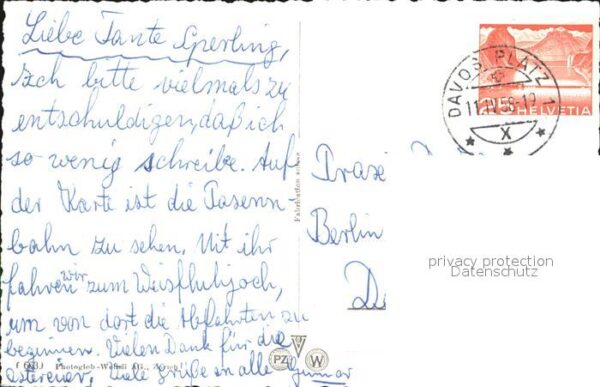 Liebe Tante Sperling,
Ich bitte vielmals zu
entschuldigen, daß ich
so wenig schreibe. Auf
der Karte ist die Parsenn-
bahn zu sehen. Mit ihr
fahren wir zum Weisfluhjoch,
um von dort die Abfahrten zu
beginnen. Vielen Dank für die
Ostereier, viele Grüße an alle Gunnar
Photoglob-Wehrli AG., Zürich
PZ W
Fabrication suisse
DAVOS PLATZ 1
11.IV.58-19
X
HELVETIA
Berlin
privacy protection
Datenschutz